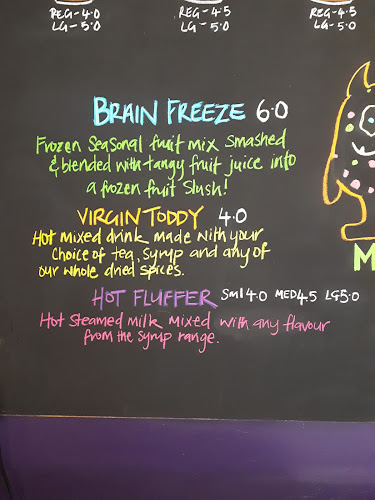 REG-4.0 REG-4.5 REG-4.5
LG-5.0 LG-5.0 LG-5.0
BRAIN FREEZE 6.0
Frozen Seasonal fruit mix smashed
& blended with tangy fruit juice into
a frozen fruit Slush!
VIRGIN TODDY 4.0
Hot mixed drink made with your
choice of tea, syrup and any of
our whole dried spices.
HOT FLUFFER Sml 4.0 MED 4.5 LG 5.0
Hot Steamed milk mixed with any flavour
from the syrup range.
M